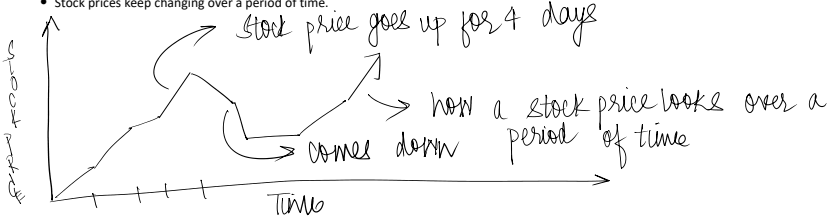 • Stock prices keep changing over a period of time.
stock price goes up for 4 days
how a stock price looks over a
period of time
comes down
Time